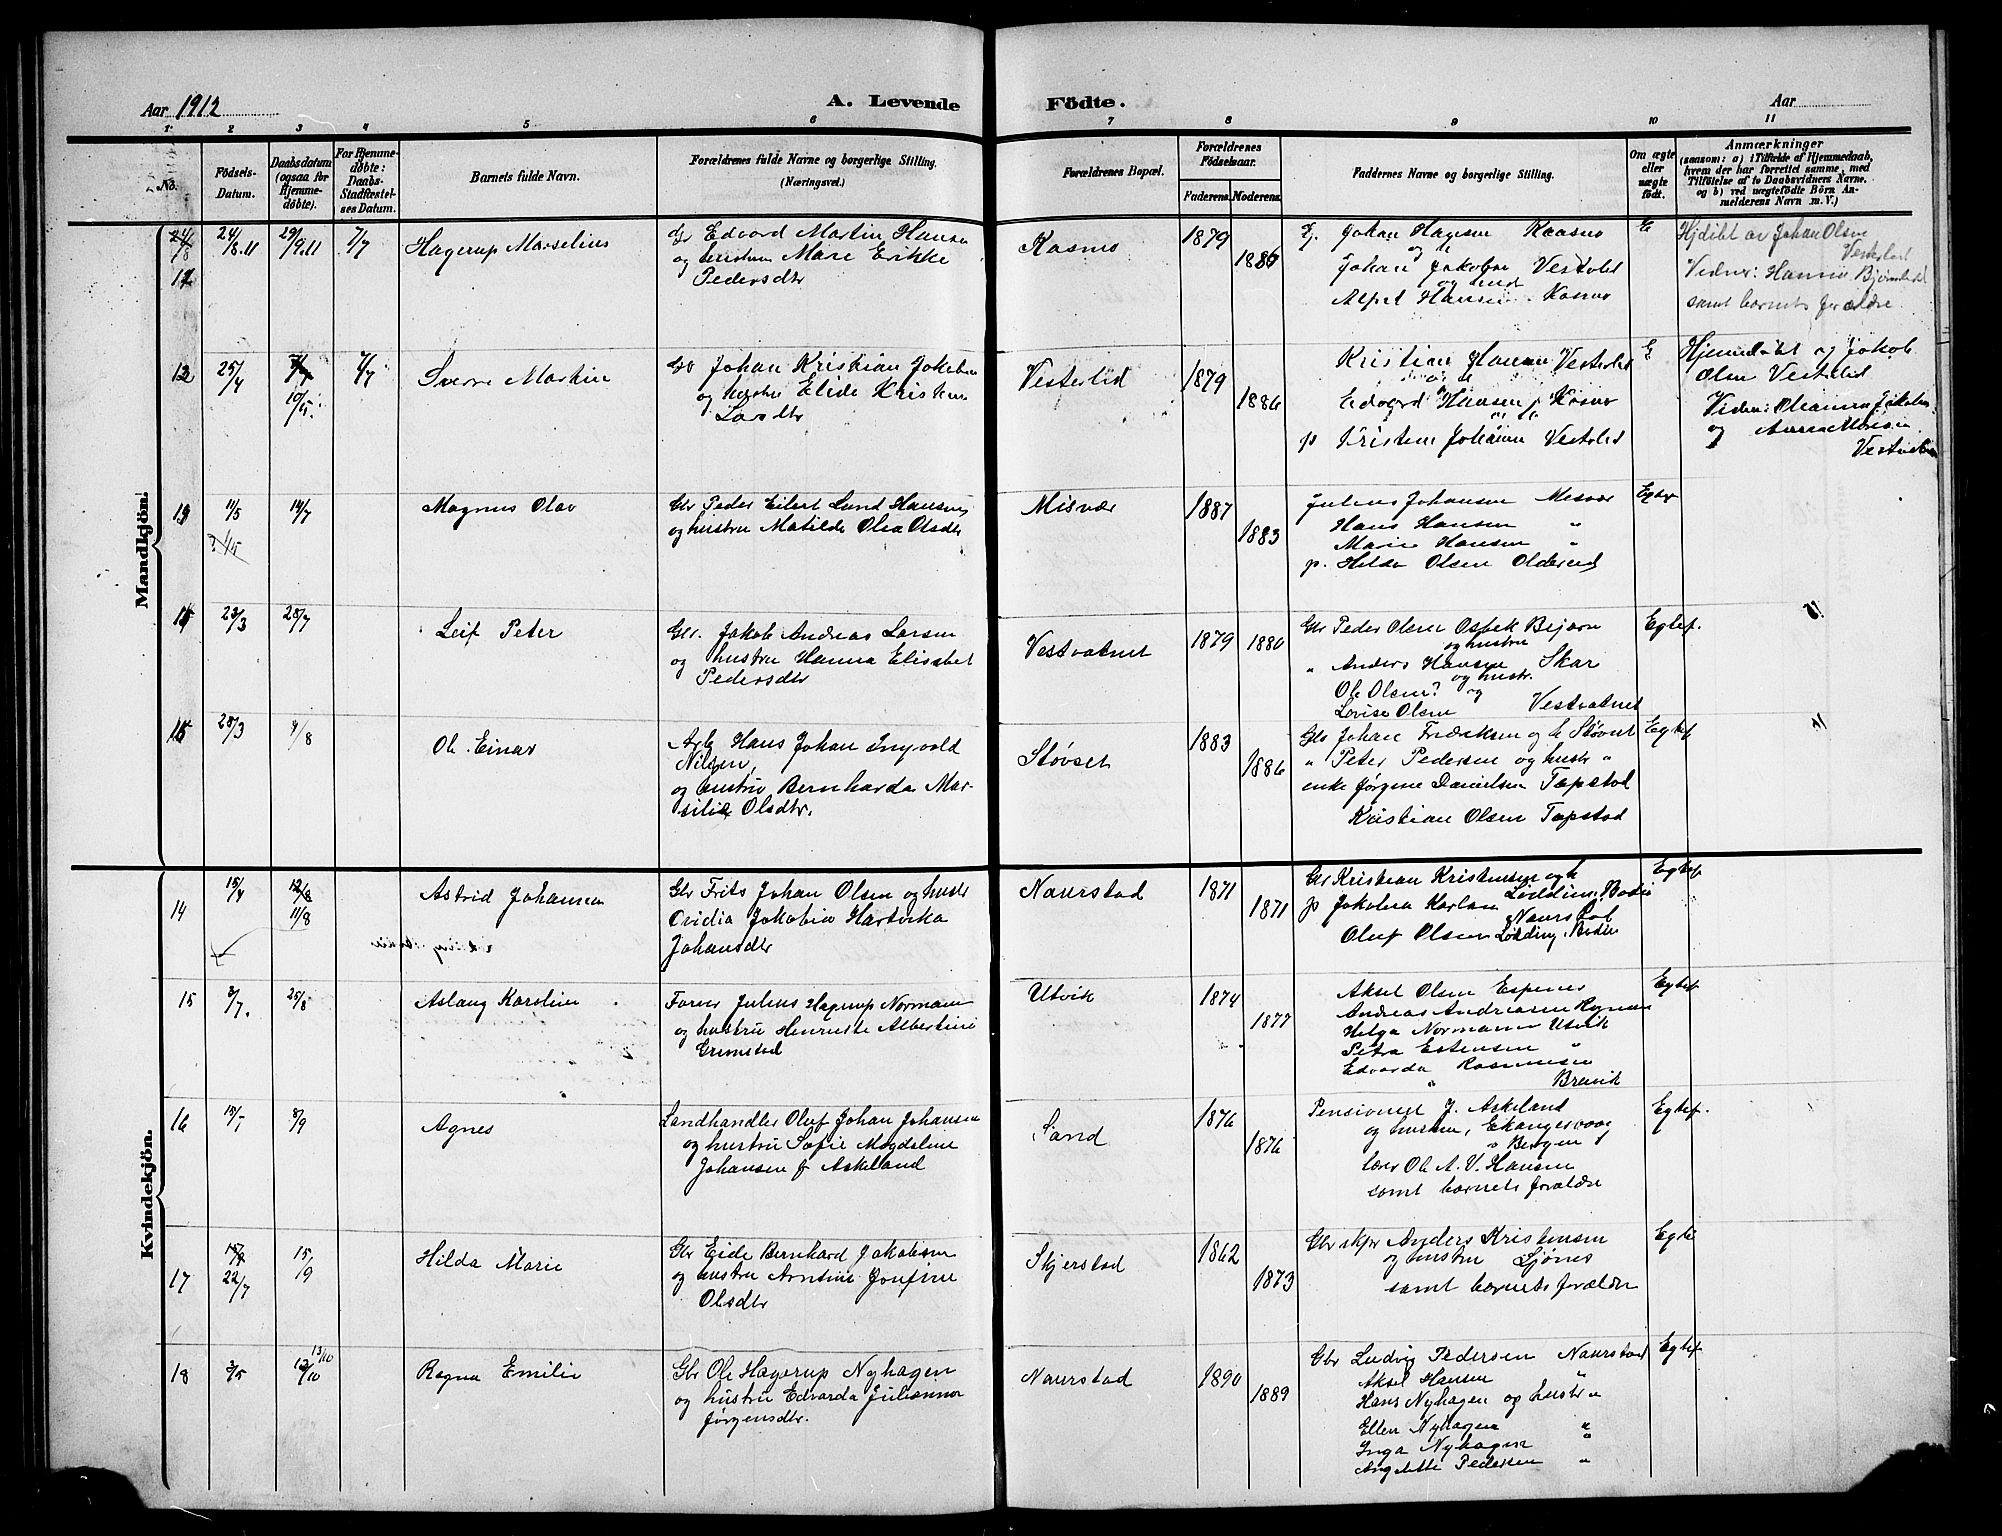 Aar 1912
A. Levende Födte.
Aar
1 2 3 4 5 6 7 8 9 10 11
No.
Födsels-
Datum.
Daabsdatum
(ogsaa for
Hjemme-
döbte).
For Hjemme-
döbte:
Daabs-
Stadfæstel-
ses Datum.
Barnets fulde Navn.
Forældrenes fulde Navne og borgerlige Stilling.
(Næringsvei.)
Forældrenes Bopæl.
Forældrenes
Födselsaar.
Faderens. Moderens.
Faddernes Navne og borgerlige Stilling.
Om ægte
eller
uægte
födt.
Anmærkninger
(saasom: a) i Tilfælde af Hjemmedaab,
hvem der har forrettet samme, med
Tilföielse af to Daabsvidners Navne.
og b) ved uægtefödte Börn An-
melderens Navn m. V.)
Mandkjön.
12
24/8.11
29/9.11
7/7
Hagerup Marselius
Gr Edvard Martin Hansen
og hustru Mare Erikke
Pedersdtr
Kasmo
1879
1886
Johan Hagesen
og
Johan Jakobsen Vestelid
Hansen Kosmo
E
Hjdöbt av Johan Olsen
Vesterlid
Vidner: Hanna
samt barnets forældre.
25/4
10/5
7/7
Sverre Martin
Johan Kristian Jakobsen
og hustru Elide Kristine
Larsdtr
Vesterlid
1879
1886
Kristian Hansen Vesterlid
Edvard Hansen Kosmo
p Kristine Johansen Vestelid
E
Hjemmedøbt og Jakob
Olsen Vestelid
Vidner:
og
11/5
14/7
Magnus Olav
Gbr Peder Eilert Lund Hansen
og hustru Matilde Olea Olsdtr
Misvær
1887
1883
Julius Johansen Misvær
Hans Hansen "
Marie Hansen "
p. Hilda Olsen Oldereid
Egtef
14
23/3
28/7
Leif Peter
Gbr. Jakob Andreas Larsen
og hustru Hanna Elisabet
Pedersdtr
Vestvatnet
1879
1880
Gbr Peder Olsen Ospek Bejarn
og hustru
" Anders Hansen Skar
og hustr.
Ole Olsen? og
Lovise Olsen Vestvatnet
Egtef.
15
28/3
4/8
Ole Einar
Arb Hans Johan Ingvold
Nilsen,
og hustru Bernharda Mar-
silie Olsdtr.
Støvset
1883
1886
Gbr Johan Fredriksen og h Støvset
" Peter Pedersen og hustr "
enke Jørgine Danielsen Tapstad
Kristian Olsen Tapstad
Egtef
Kvindekjön.
14
15/4
11/8
Astrid Johansen
Gbr Frits Johan Olsen og hustr
Ovidia Jakobine Hartvika
Johansdtr
Naurstad
1871
1871
Gbr Kristian Kristensen og h
Lødding, Bodin
p Jakobine Karlsen
Naurstad
Oluf Olsen Lødding, Bodin
Egtef.
15
3/7.
25/8
Aslaug Karoline
Forver Julius Hagerup Normann
og hustru Henriette Albertine
Grimstad
Utvik
1874
1877
Aksel Olsen Espenes
Andreas Andreasen
Helga Normann Utvik
Petra Estensen "
Edvarda Rasmussen
" Breivik
Egtef.
16
8/9
Agnes
Landhandler Oluf Johan Johansen
og hustru Sofie Magdalene
Johansen f Askeland
Sand
1876
1876
Pensioneret J. Askeland
og hustru, Ekangervaag
Bergen
lærer Ole A. V. Hansen
samt barnets forældre
Egtef.
17
22/7
15/9
Hilda Marie
Gbr Eide Bernhard Jakobsen
og hustru Arntine Josefine
Olsdtr
Skjerstad
1862
1873
Gbr skpr Anders Kristensen
og hustru Ljønes
samt barnets forældre
Egte
18
3/5
13/10
Ragna Emilie
Gbr Ole Hagerup Nyhagen
og hustru Edvarda Julianna
Jørgensdtr.
Naurstad
1890
1889
Gbr Ludvig Pedersen Naurstad
Aksel Hansen "
Hans Nyhagen og hustr "
Ellen Nyhagen "
Inga Nyhagen "
Angelette Pedersen "
Egtef